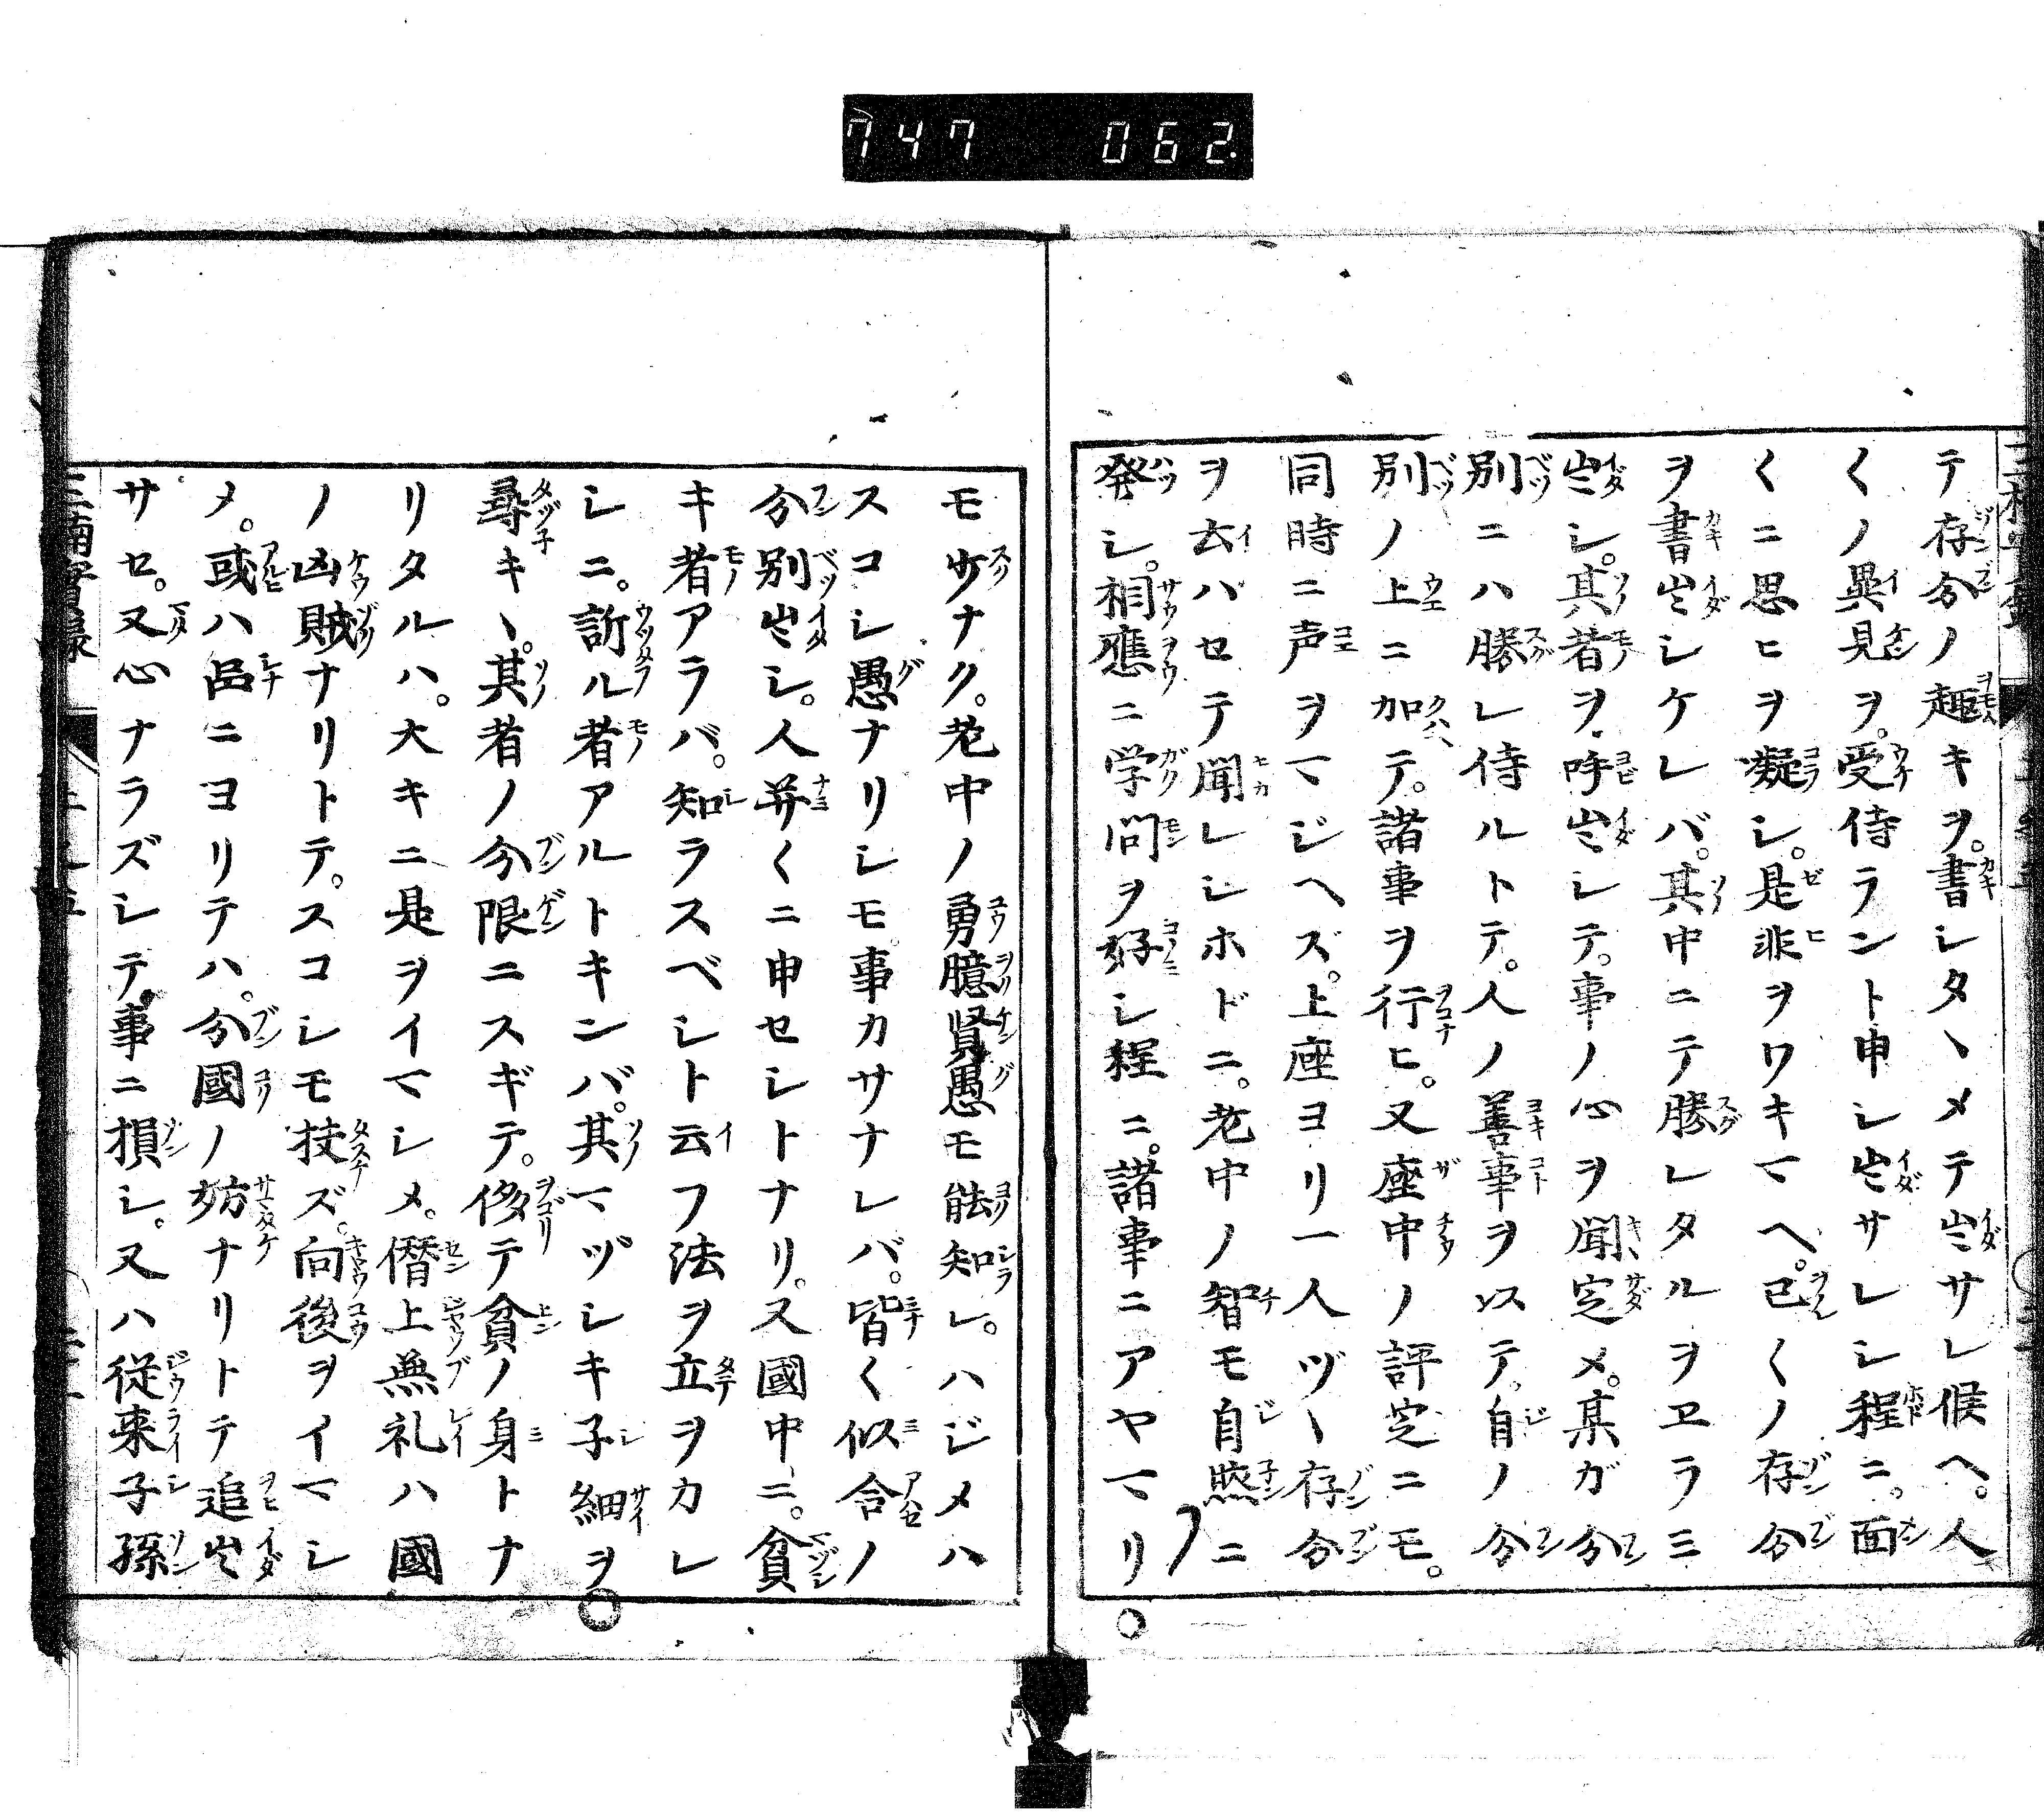 747 062.
テ存分ノ趣キヲ。書シタヽメテ出サレ候ヘ。人
〱ノ異見ヲ。受侍ラント申シ出サレシ程ニ。面
〱ニ思ヒヲ凝シ。是非ヲワキマヘ。己〱ノ存分
ヲ書出シケレバ。其中ニテ勝レタルヲヱラミ
出シ。其者ヲ呼出シテ。事ノ心ヲ聞定メ。某ガ分
別ニハ勝レ侍ルトテ。人ノ善事ヲ以テ。自ノ分
別ノ上ニ加テ。諸事ヲ行ヒ。又座中ノ評定ニモ。
同時ニ声ヲマジヘズ。上座ヨリ一人ヅヽ存分
ヲ云バセテ聞レシホドニ。老中ノ智モ自然ニ
発シ。相應ニ学問ヲ好シ程ニ。諸事ニアヤマリ
モ少ナク。老中ノ勇臆賢愚モ能知レ。ハジメハ
スコシ愚ナリシモ事カサナレバ。皆〱似合ノ
分別出シ。人並〱ニ申セシトナリ。又國中ニ。貧
キ者アラバ。知ラスベシト云フ法ヲ立ヲカレ
シニ。訴ル者アルトキンバ。其マヅシキ子細ヲ
尋キヽ。其者ノ分限ニスギテ。侈テ貧ノ身トナ
リタルハ。大キニ是ヲイマシメ。僭上無礼ハ國
ノ凶賊ナリトテ。スコシモ扶ズ。向後ヲイマシ
メ。或ハ品ニヨリテハ。分國ノ妨ナリトテ追出
サセ。又心ナラズシテ事ニ損シ。又ハ従来子孫